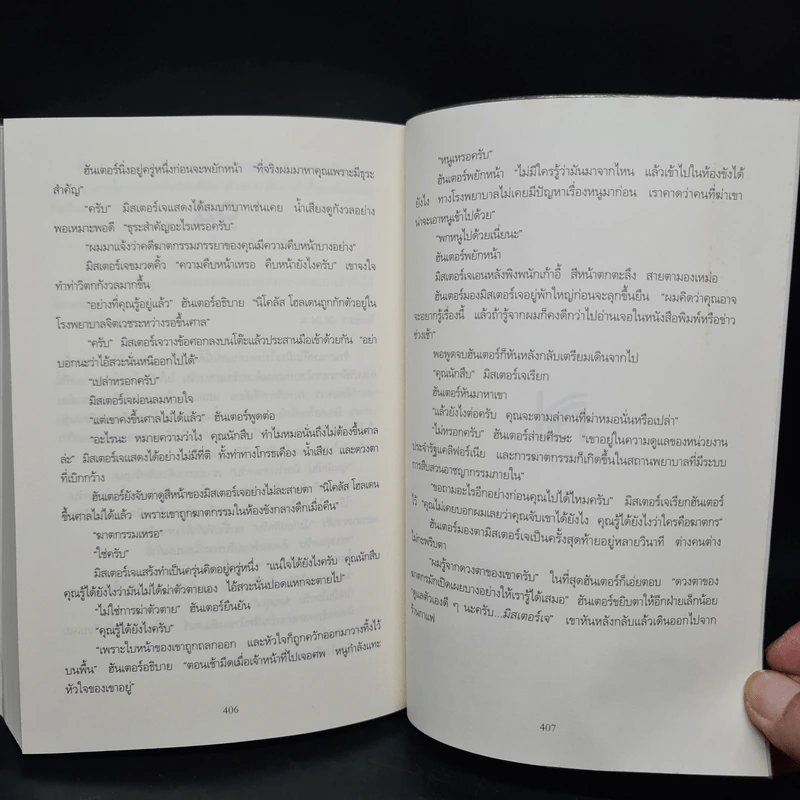 ฮันเตอร์นิ่งอยู่ครู่หนึ่งก่อนจะพยักหน้า "ที่จริงผมมาหาคุณเพราะมีธุระ
สำคัญ"
"ครับ" มิสเตอร์เจแสดงได้สมบทบาทเช่นเคย น้ำเสียงดูกังวลอย่าง
พอเหมาะพอดี "ธุระสำคัญอะไรเหรอครับ"
"ผมมาแจ้งว่าคดีฆาตกรรมภรรยาของคุณมีความคืบหน้าบางอย่าง"
มิสเตอร์เจขมวดคิ้ว "ความคืบหน้าเหรอ คืบหน้ายังไงครับ" เขาจงใจ
ทำท่าวิตกกังวลมากขึ้น
"อย่างที่คุณรู้อยู่แล้ว" ฮันเตอร์อธิบาย "นิโคลัส โฮลเดนถูกกักตัวอยู่ใน
โรงพยาบาลจิตเวชระหว่างรอขึ้นศาล"
"ครับ" มิสเตอร์เจวางข้อศอกลงบนโต๊ะแล้วประสานมือเข้าด้วยกัน "อย่า
บอกนะว่าไอ้สวะนั่นหนีออกไปได้"
"เปล่าหรอกครับ"
มิสเตอร์เจผ่อนลมหายใจ
"แต่เขาคงขึ้นศาลไม่ได้แล้ว" ฮันเตอร์พูดต่อ
"อะไรนะ หมายความว่าไง คุณนักสืบ ทำไมหมอนั่นถึงไม่ต้องขึ้นศาล
ล่ะ" มิสเตอร์เจแสดงได้อย่างไม่มีที่ติ ทั้งท่าทางโกรธเคือง น้ำเสียง และดวงตา
ที่เบิกกว้าง
ฮันเตอร์ยังจับตาดูสีหน้าของมิสเตอร์เจอย่างไม่ละสายตา "นิโคลัส โฮลเดน
ขึ้นศาลไม่ได้แล้ว เพราะเขาถูกฆาตกรรมในห้องขังกลางดึกเมื่อคืน"
"ฆาตกรรมเหรอ"
"ใช่ครับ"
มิสเตอร์เจแสร้งทำเป็นครุ่นคิดอยู่ครู่หนึ่ง "แน่ใจได้ยังไงครับ คุณนักสืบ
คุณรู้ได้ยังไงว่ามันไม่ได้ฆ่าตัวตายเอง ไอ้สวะนั่นปอดแหกจะตายไป"
"ไม่ใช่การฆ่าตัวตาย" ฮันเตอร์ยืนยัน
"คุณรู้ได้ยังไงครับ"
"เพราะใบหน้าของเขาถูกถลกออก และหัวใจก็ถูกควักออกมาวางทิ้งไว้
บนพื้น" ฮันเตอร์อธิบาย "ตอนเช้ามืดเมื่อเจ้าหน้าที่ไปเจอศพ หนูกำลังแทะ
หัวใจของเขาอยู่"
406
"หนูเหรอครับ"
ฮันเตอร์พยักหน้า "ไม่มีใครรู้ว่ามันมาจากไหน แล้วเข้าไปในห้องขังได้
ยังไง ทางโรงพยาบาลไม่เคยมีปัญหาเรื่องหนูมาก่อน เราคาดว่าคนที่ฆ่าเขา
น่าจะเอาหนูเข้าไปด้วย"
"พกหนูไปด้วยเนี่ยนะ"
ฮันเตอร์พยักหน้า
มิสเตอร์เจเอนหลังพิงพนักเก้าอี้ สีหน้าตกตะลึง สายตามองเหม่อ
ฮันเตอร์มองมิสเตอร์เจอยู่พักใหญ่ก่อนจะลุกขึ้นยืน "ผมคิดว่าคุณอาจ
จะอยากรู้เรื่องนี้ แล้วถ้ารู้จากผมก็คงดีกว่าไปอ่านเจอในหนังสือพิมพ์หรือข่าว
ช่วงเช้า"
พอพูดจบฮันเตอร์ก็หันหลังกลับเตรียมเดินจากไป
"คุณนักสืบ" มิสเตอร์เจเรียก
ฮันเตอร์หันมาหาเขา
"แล้วยังไงต่อครับ คุณจะตามล่าคนที่ฆ่าหมอนั่นหรือเปล่า"
"ไม่หรอกครับ" ฮันเตอร์ส่ายศีรษะ "เขาอยู่ในความดูแลของหน่วยงาน
ประจำรัฐแคลิฟอร์เนีย และการฆาตกรรมก็เกิดขึ้นในสถานพยาบาลที่มีระบบ
การสืบสวนอาชญากรรมภายใน"
"ขอถามอะไรอีกอย่างก่อนคุณไปได้ไหมครับ" มิสเตอร์เจเรียกฮันเตอร์
ไว้ "คุณไม่เคยบอกผมเลยว่าคุณจับเขาได้ยังไง คุณรู้ได้ยังไงว่าใครคือฆาตกร"
ฮันเตอร์มองตามิสเตอร์เจเป็นครั้งสุดท้ายอยู่หลายวินาที ต่างคนต่าง
ไม่กะพริบตา
"ผมรู้จากดวงตาของเขาครับ" ในที่สุดฮันเตอร์ก็เอ่ยตอบ "ดวงตาของ
ฆาตกรมักเปิดเผยบางอย่างให้เรารู้ได้เสมอ" ฮันเตอร์ขยิบตาให้อีกฝ่ายเล็กน้อย
"ดูแลตัวเองดี ๆ นะครับ...มิสเตอร์เจ" เขาหันหลังกลับแล้วเดินออกไปจาก
ร้านกาแฟ
407